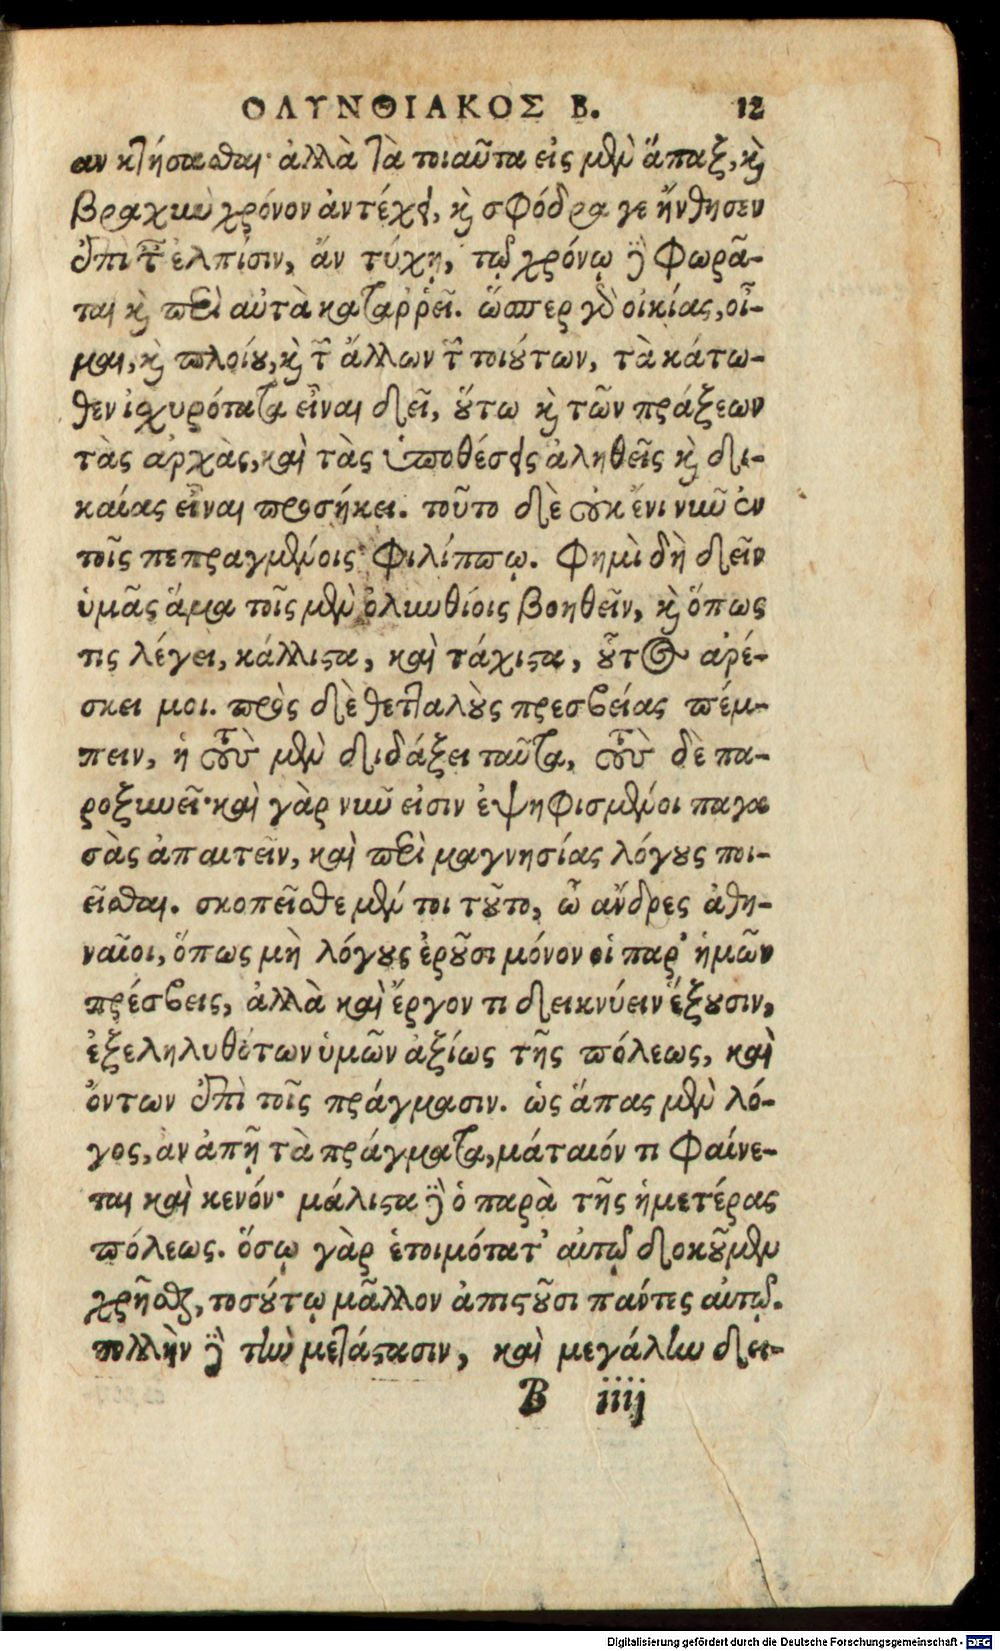 ΟΛΥΝΘΙΑΚΟΣ Β. 12
αν κτήσασθαι· ἀλλὰ τὰ τοιαῦτα εἰς μὲν ἅπαξ, καὶ
βραχὺν χρόνον ἀντέχει, καὶ σφόδρα γε ἤνθησεν
ἐπὶ ταῖς ἐλπίσιν, ἂν τύχῃ, τῷ χρόνῳ δὲ φωρᾶ-
ται καὶ περὶ αὐτὰ καταῤῥεῖ. ὥσπερ γὰρ οἰκίας, οἶ-
μαι, καὶ πλοίου, καὶ τῶν ἄλλων τῶν τοιούτων, τὰ κάτω-
θεν ἰσχυρότατα εἶναι δεῖ, οὕτω καὶ τῶν πράξεων
τὰς ἀρχὰς, καὶ τὰς ὑποθέσεις ἀληθεῖς καὶ δι-
καίας εἶναι προσήκει. τοῦτο δὲ οὐκ ἔνι νῦν ἐν
τοῖς πεπραγμένοις Φιλίππῳ. Φημὶ δὴ δεῖν
ὑμᾶς ἅμα τοῖς μὲν ὀλυνθίοις βοηθεῖν, καὶ ὅπως
τις λέγει, κάλλιστα, καὶ τάχιστα, οὕτως ἀρέ-
σκει μοι. πρὸς δὲ θετταλοὺς πρεσβείας πέμ-
πειν, ἣ τοὺς μὲν διδάξει ταῦτα, τοὺς δὲ πα-
ροξυνεῖ· καὶ γὰρ νῦν εἰσιν ἐψηφισμένοι παγα
σὰς ἀπαιτεῖν, καὶ περὶ μαγνησίας λόγους ποι-
εῖσθαι. σκοπεῖσθε μέν τοι τοῦτο, ὦ ἄνδρες ἀθη-
ναῖοι, ὅπως μὴ λόγους ἐροῦσι μόνον οἱ παρ' ἡμῶν
πρέσβεις, ἀλλὰ καὶ ἔργον τι δεικνύειν ἕξουσιν,
ἐξεληλυθότων ὑμῶν ἀξίως τῆς πόλεως, καὶ
ὄντων ἐπὶ τοῖς πράγμασιν. ὡς ἅπας μὲν λό-
γος, ἂν ἀπῇ τὰ πράγματα, μάταιόν τι φαίνε-
ται καὶ κενόν· μάλιστα δὲ ὁ παρὰ τῆς ἡμετέρας
πόλεως. ὅσῳ γὰρ ἑτοιμότατ' αὐτῷ δοκοῦμεν
χρῆσθαι, τοσούτῳ μᾶλλον ἀπιστοῦσι πάντες αὐτῷ.
πολλὴν δὲ τὴν μετάστασιν, καὶ μεγάλην δει-
B iiij
Digitalisierung gefördert durch die Deutsche Forschungsgemeinschaft - DFG